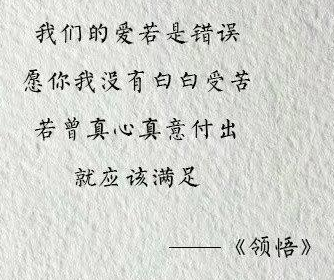 我们的爱若是错误
愿你我没有白白受苦
若曾真心真意付出
就应该满足
——《领悟》